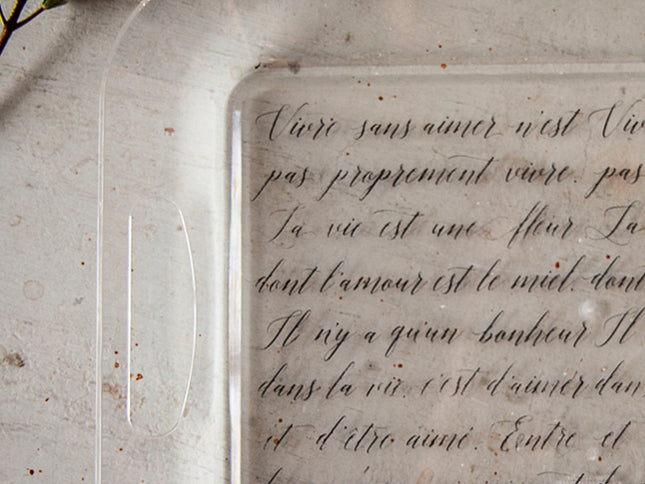 Vivre sans aimer n'est Viv
pas proprement vivre. pas
La vie est une fleur La
dont l'amour est le miel. dont
Il n'y a qu'un bonheur Il
dans la vie, c'est d'aimer dan
et d'être aimé. Entre et